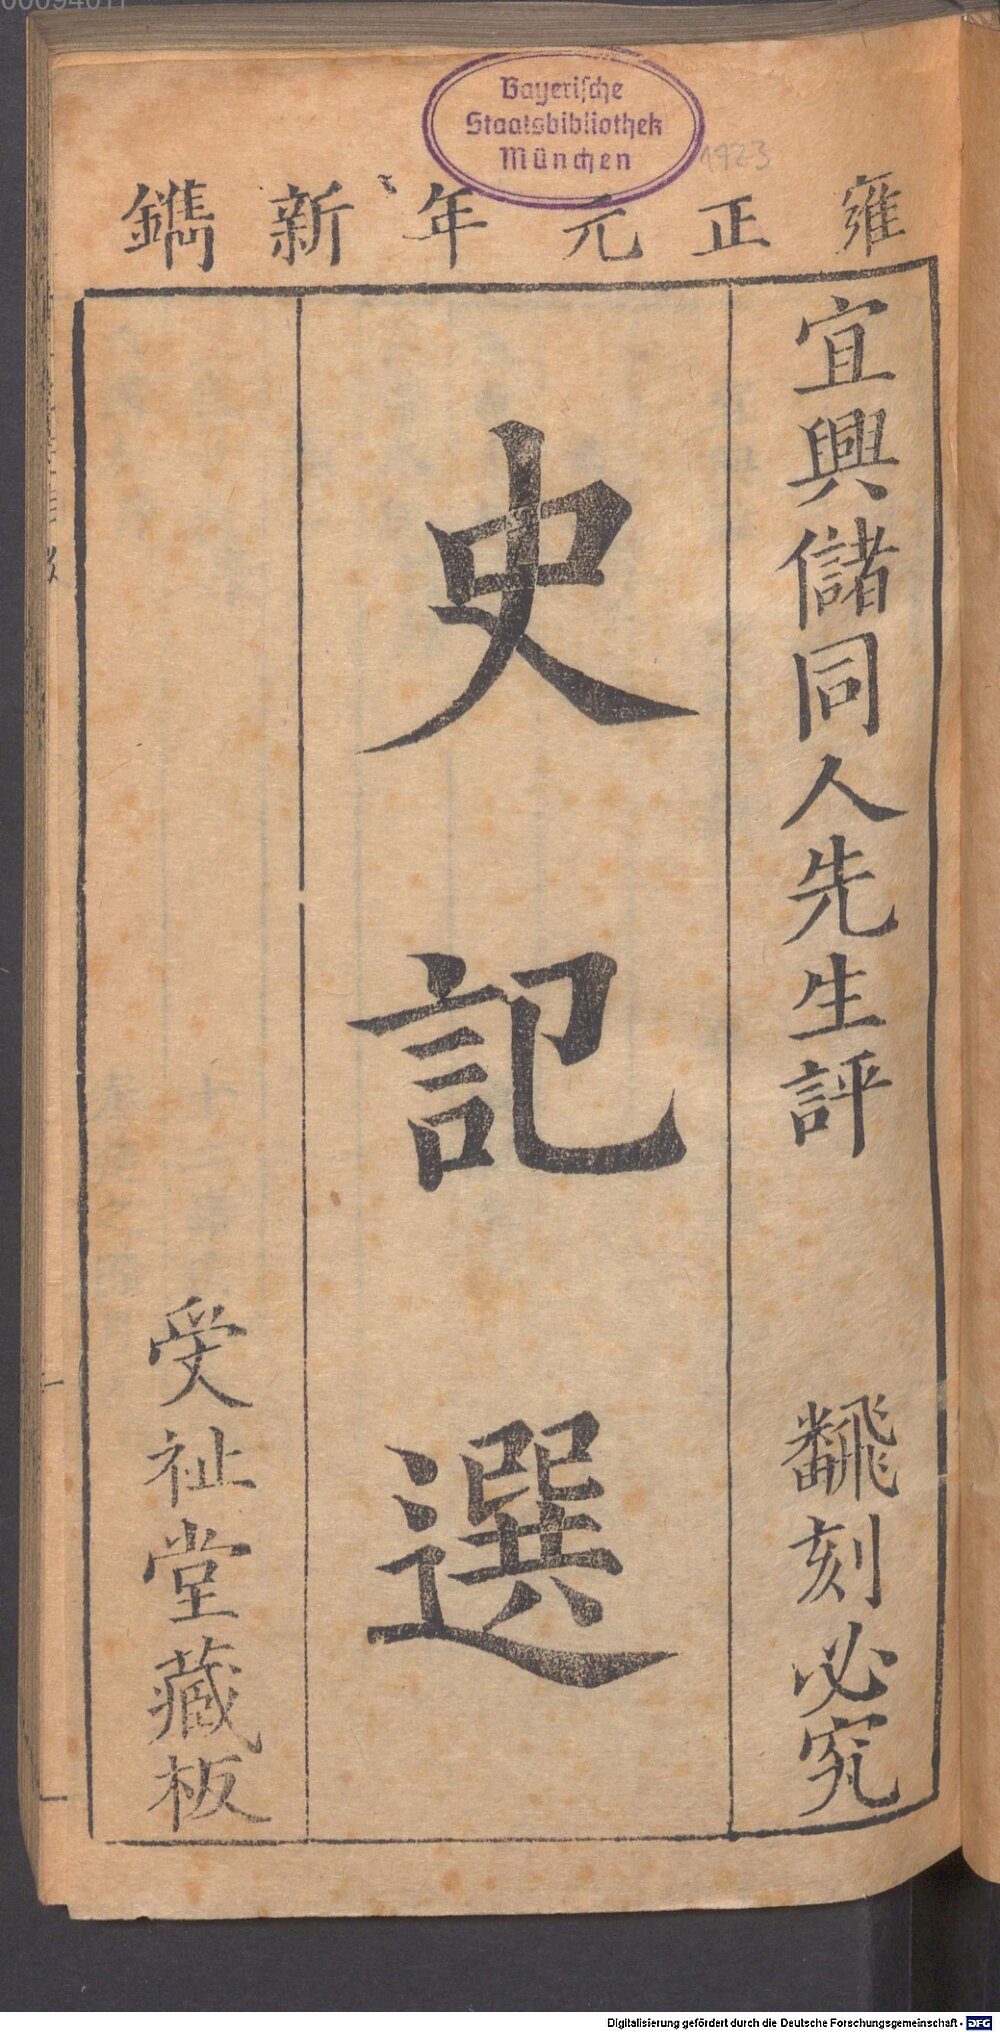 Bayerische
Staatsbibliothek
München
1723
雍正元年新鐫
宜興儲同人先生評
翻刻必究
史記選
受祉堂藏板
Digitalisierung gefördert durch die Deutsche Forschungsgemeinschaft - DFG